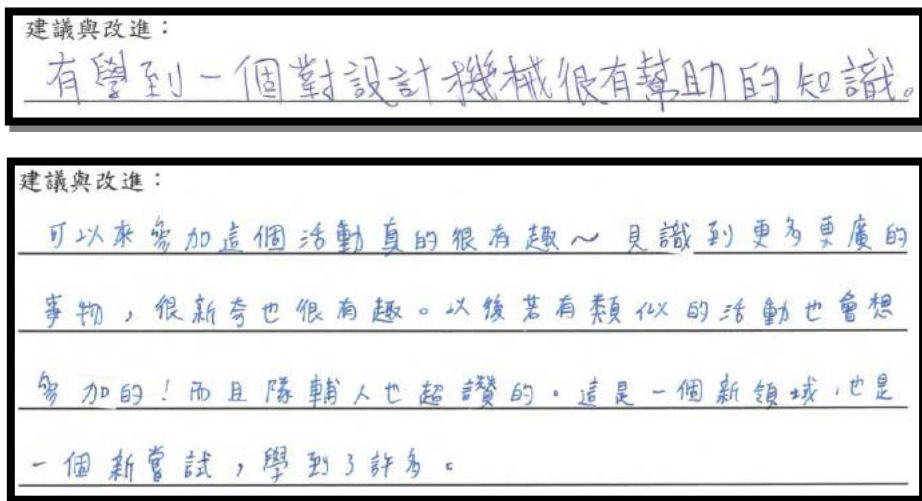 建議與改進：
有學到一個對設計機械很有幫助的知識。
建議與改進：
可以來參加這個活動真的很有趣～見識到更多更廣的
事物，很新奇也很有趣。以後若有類似的活動也會想
參加的！而且隊輔人也超讚的。這是一個新領域，也是
一個新嘗試，學到了許多。